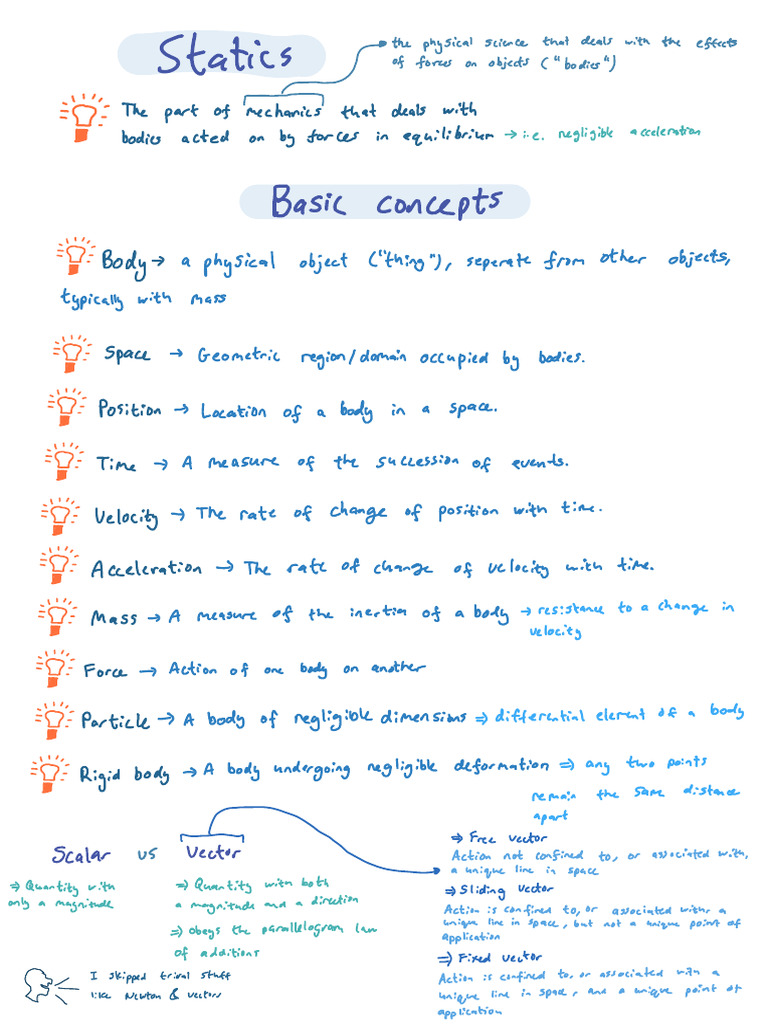 Statics
the physical science that deals with the effects
of forces on objects ("bodies")
The part of mechanics that deals with
bodies acted on by forces in equilibrium → i.e. negligible acceleration
Basic concepts
Body → a physical object ("thing"), seperate from other objects,
typically with mass
Space → Geometric region/domain occupied by bodies.
Position → Location of a body in a space.
Time → A measure of the succession of events.
Velocity → The rate of change of position with time.
Acceleration → The rate of change of velocity with time.
Mass → A measure of the inertia of a body → resistance to a change in
velocity
Force → Action of one body on another
Particle → A body of negligible dimensions ⇒ differential element of a body
Rigid body → A body undergoing negligible deformation ⇒ any two points
remain the same distance
apart
Scalar vs Vector
⇒ Quantity with
only a magnitude
⇒ Quantity with both
a magnitude and a direction
⇒ obeys the parallelogram law
of additions
⇒ Free vector
Action not confined to, or associated with,
a unique line in space
⇒ Sliding vector
Action is confined to, or associated with a
unique line in space, but not a unique point of
application
⇒ Fixed vector
Action is confined to, or associated with a
unique line in space, and a unique point of
application
I skipped trival stuff
like Newton & vectors